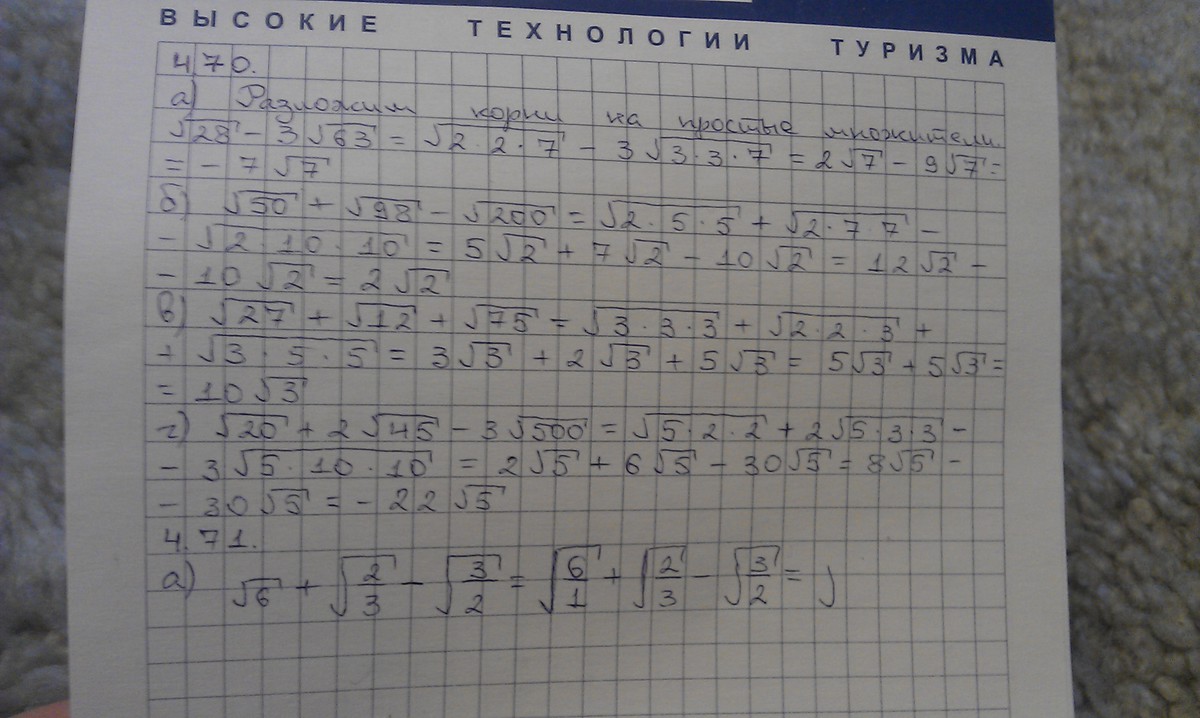 ВЫСОКИЕ ТЕХНОЛОГИИ ТУРИЗМА
470.
а) Разложим корни на простые множители.
√28 - 3√63 = √2·2·7 - 3√3·3·7 = 2√7 - 9√7 =
= - 7√7
б) √50 + √98 - √200 = √2·5·5 + √2·7·7 -
- √2·10·10 = 5√2 + 7√2 - 10√2 = 12√2 -
- 10√2 = 2√2
в) √27 + √12 + √75 = √3·3·3 + √2·2·3 +
+ √3·5·5 = 3√3 + 2√3 + 5√3 = 5√3 + 5√3 =
= 10√3
г) √20 + 2√45 - 3√500 = √5·2·2 + 2√5·3·3 -
- 3√5·10·10 = 2√5 + 6√5 - 30√5 = 8√5 -
- 30√5 = - 22√5
471.
а) √6 + √2/3 - √3/2 = √6/1 + √2/3 - √3/2 =